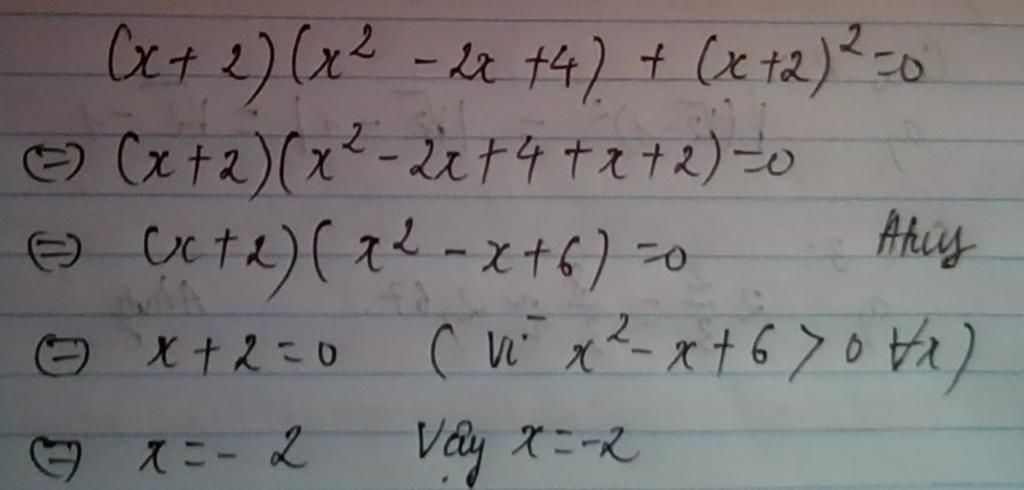 (x+2)(x² - 2x +4) + (x+2)² =0
⇔ (x+2)(x² - 2x+4 +x+2)=0
⇔ (x+2)(x² - x+6)=0
⇔ x+2=0 (Vì x² - x+6 > 0 ∀x)
⇔ x=-2 Vậy x=-2